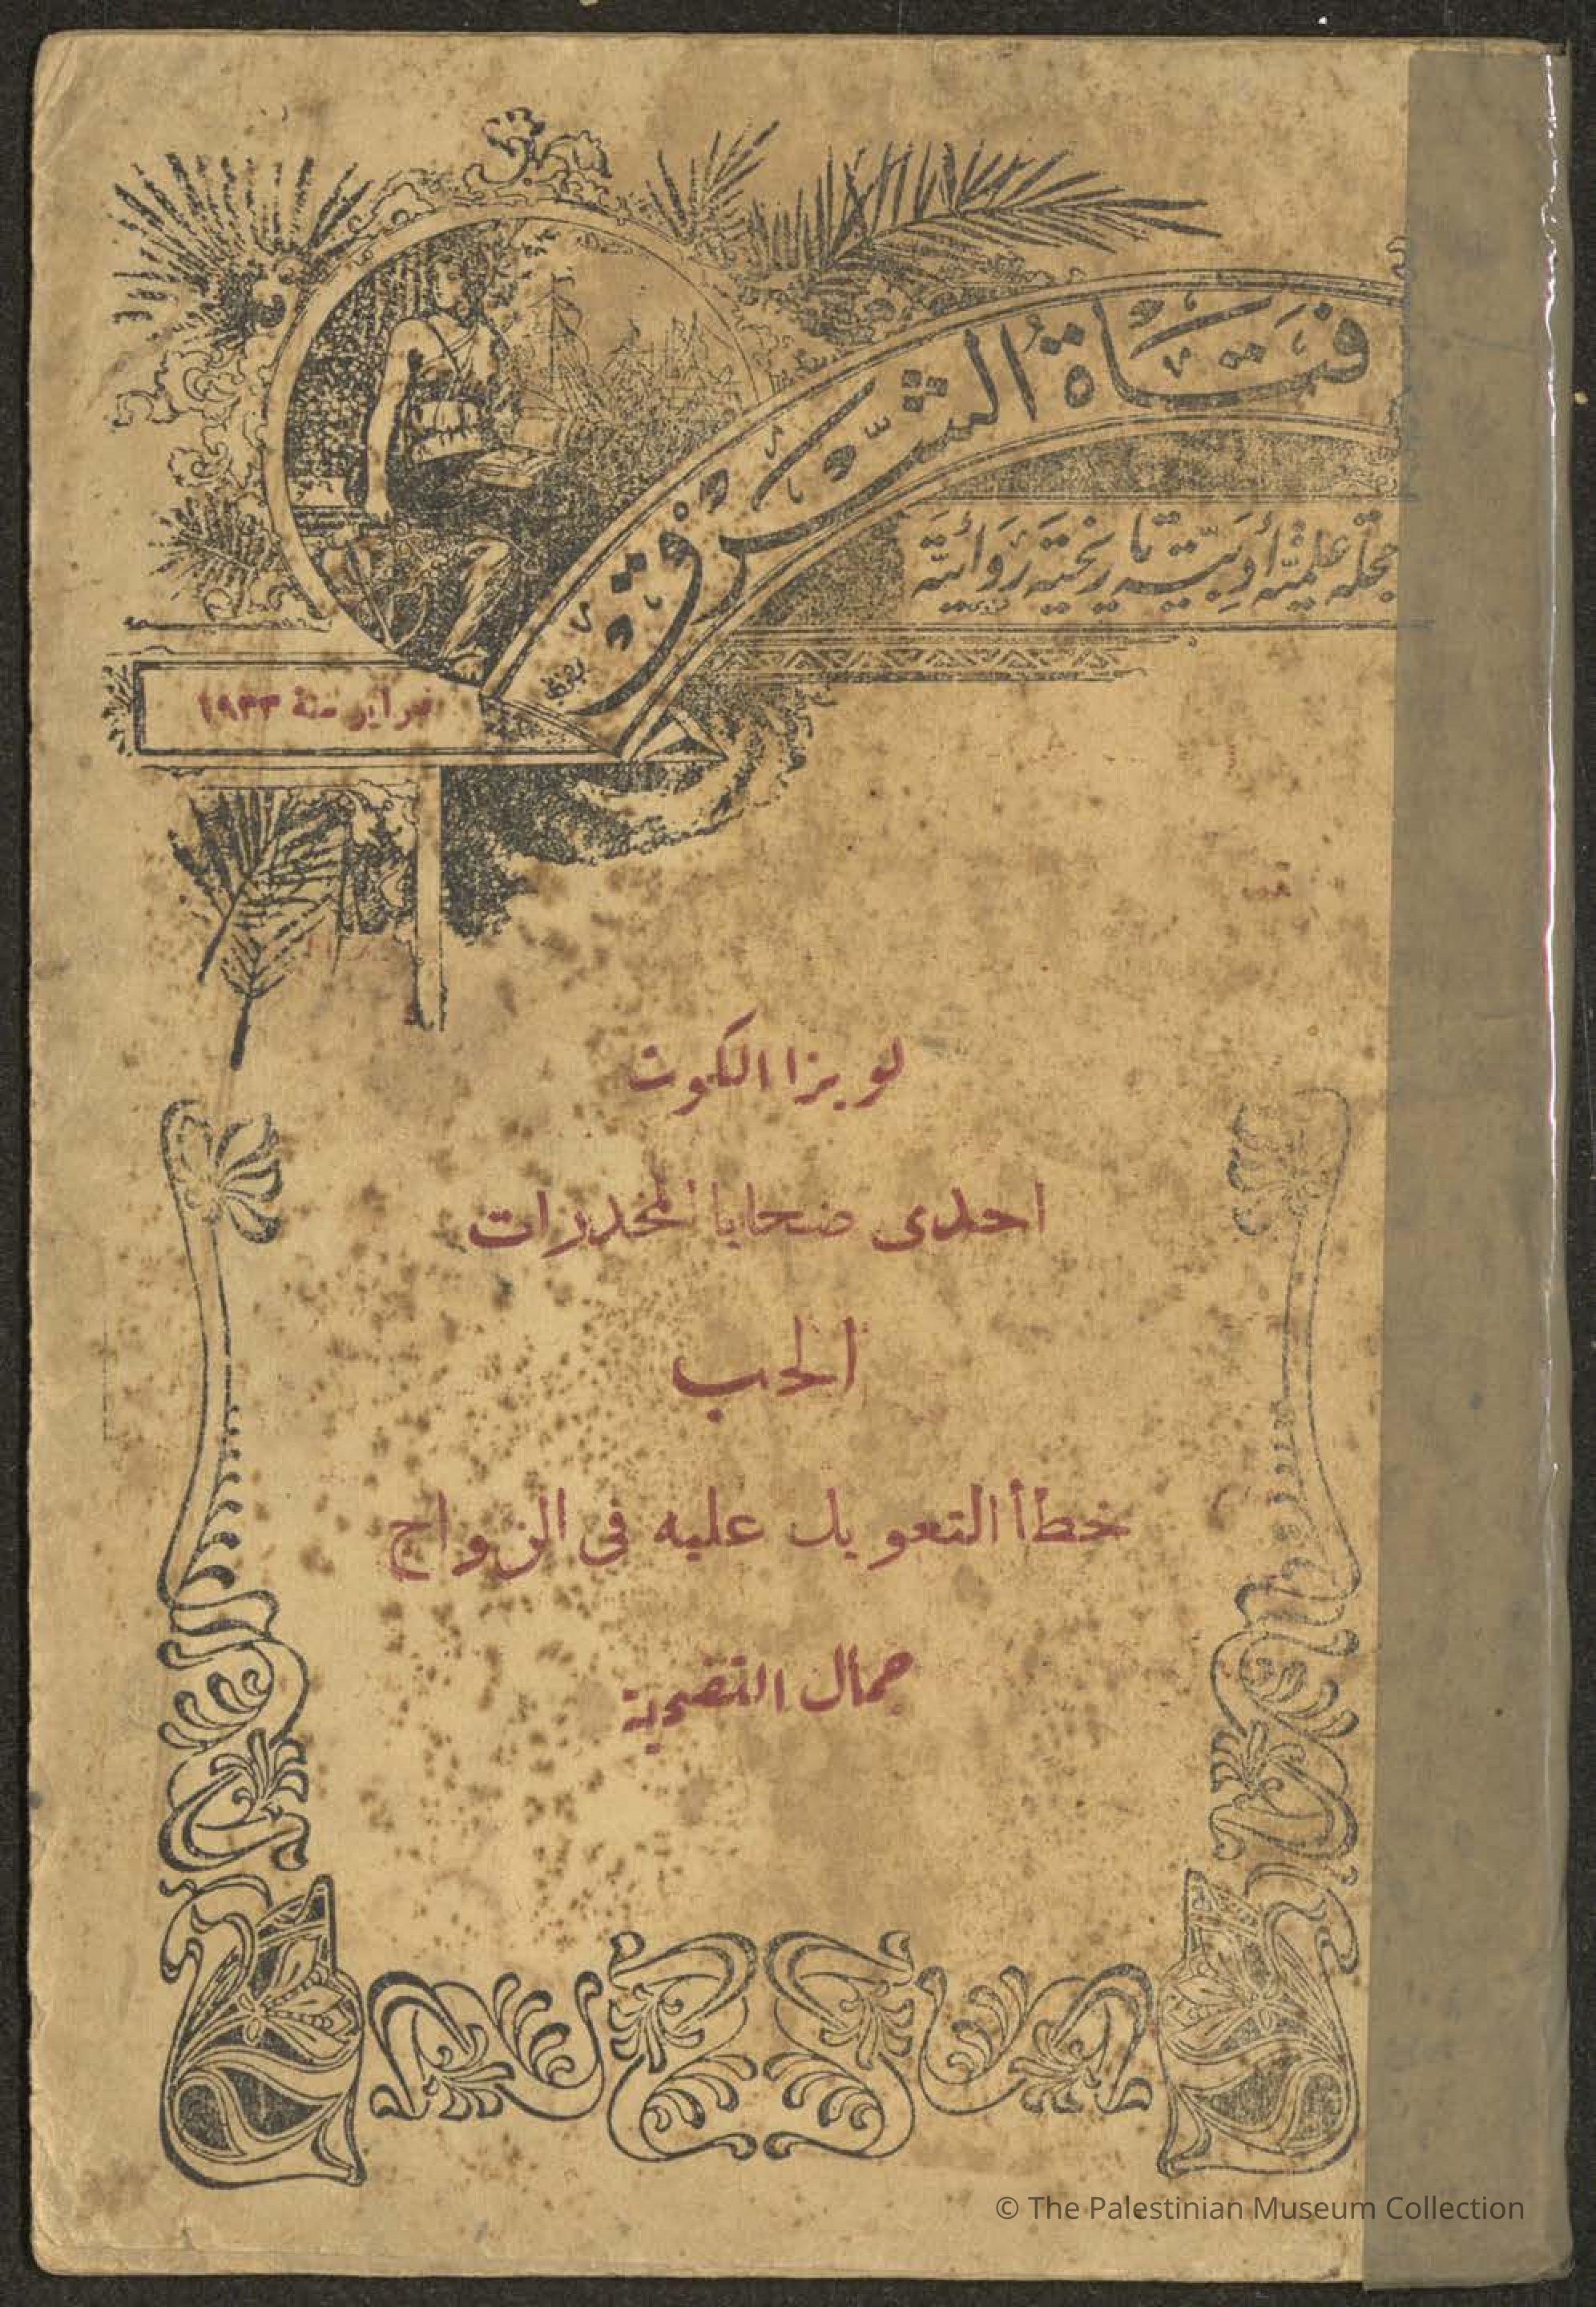 فتاة الشرق
مجلة علمية أدبية تاريخية روائية
فبراير سنة ١٩٣٣
لويزا الكوت
احدى ضحايا المخدرات
الحب
خطأ التعويل عليه فى الزواج
جمال التضحية
© The Palestinian Museum Collection